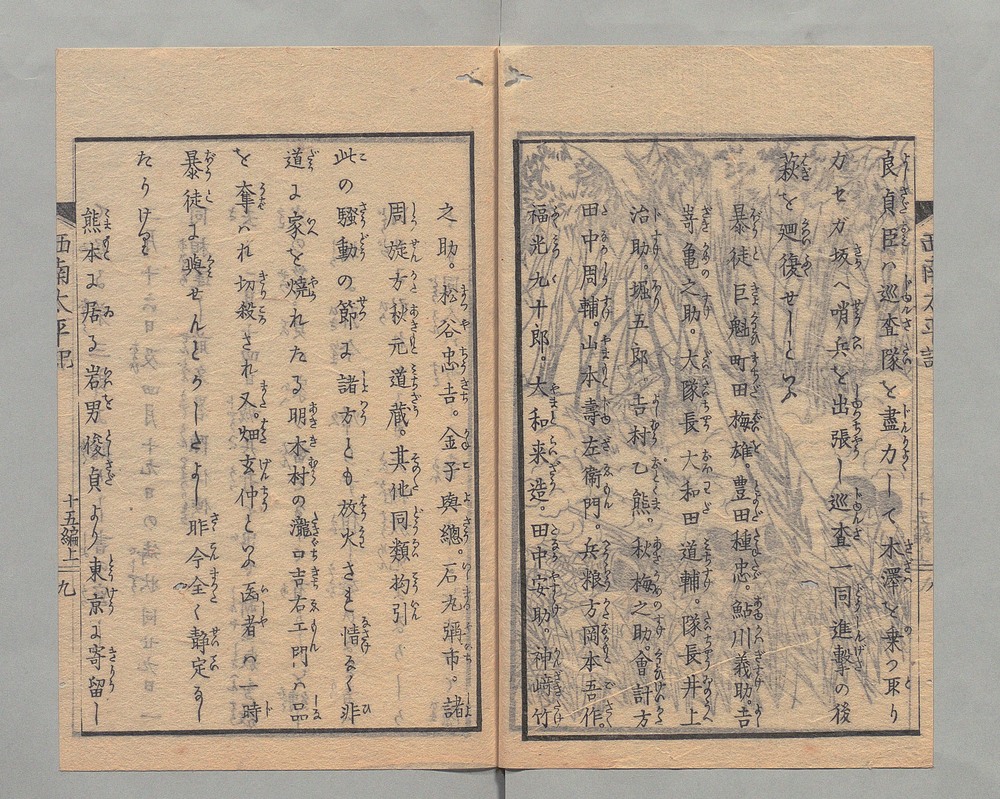 良貞臣ハ巡査隊を盡力して木澤を乗つ取り
カセガ坂へ哨兵を出張し巡査一同進撃の後
萩を廻復せしといふ
暴徒巨魁町田梅雄。豊田種忠。鮎川義助。吉
嵜亀之助。大隊長大和田道輔。隊長井上
治助。堀五郎。吉村乙熊。秋梅之助。會計方
田中周輔。山本壽左衛門。兵粮方岡本吾作
福光九十郎。大和来造。田中安助。神﨑竹
之助。松谷忠吉。金子與總。石九彌市。諸
周旋方秋元道蔵。其他同類拘引
此の騒動の節は諸方とも放火され情なく非
道に家を燒れたる明木村の瀧口吉右エ門ハ品
を奪ハれ切殺され又。畑玄仲といふ医者ハ一時
暴徒に與せんとかしとよし昨今全く静定なし
たりけり
熊本に居る岩男俊貞より東京に寄留し
西南太平記
十五編上
九